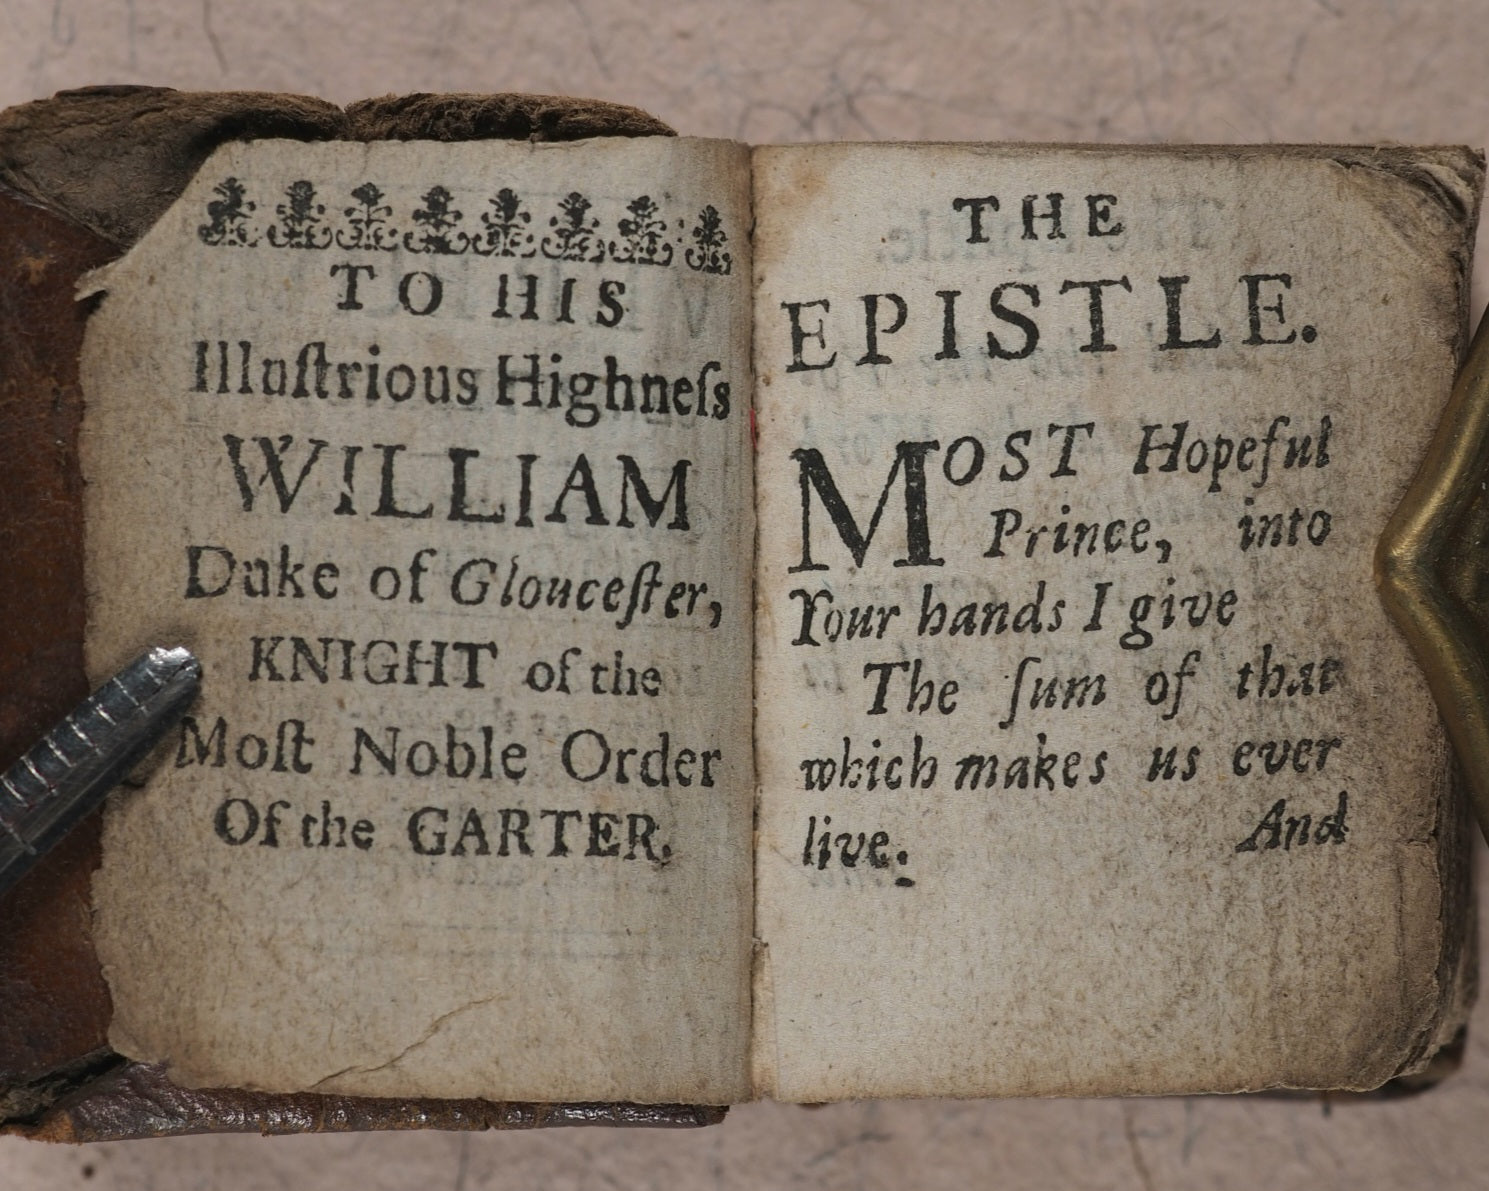 TO HIS
Illuſtrious Highneſs
WILLIAM
Duke of Glouceſter,
KNIGHT of the
Moſt Noble Order
Of the GARTER.
THE
EPISTLE.
MOST Hopeful
Prince, into
Your hands I give
The ſum of that
which makes us ever
live.
And